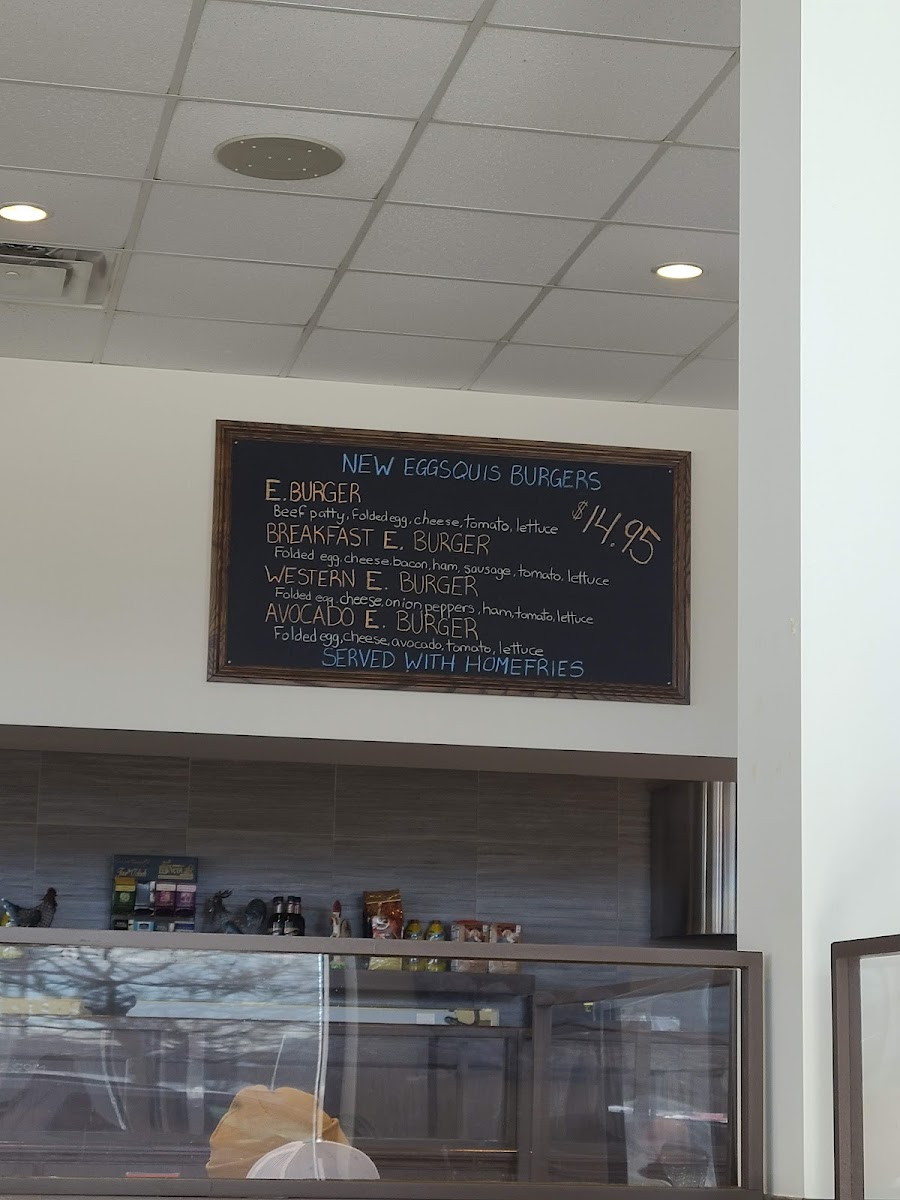 NEW EGGSQUIS BURGERS
E. BURGER
$14.95
Beef patty, folded egg, cheese, tomato, lettuce
BREAKFAST E. BURGER
Folded egg, cheese, bacon, ham, sausage, tomato, lettuce
WESTERN E. BURGER
Folded egg, cheese, onion, peppers, ham, tomato, lettuce
AVOCADO E. BURGER
Folded egg, cheese, avocado, tomato, lettuce
SERVED WITH HOMEFRIES